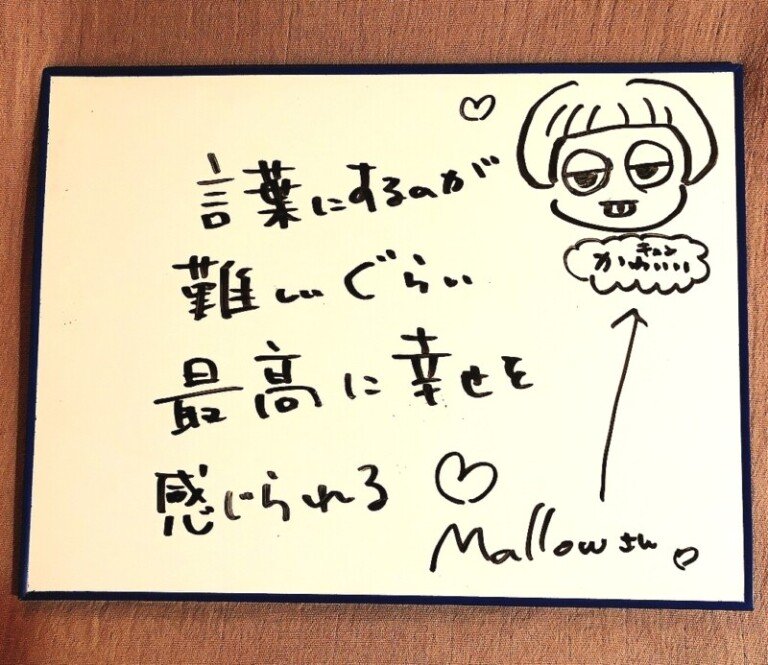 言葉にするのが
難しいぐらい
最高に幸せを
感じられる
キュン
かわいい
Mallowさん